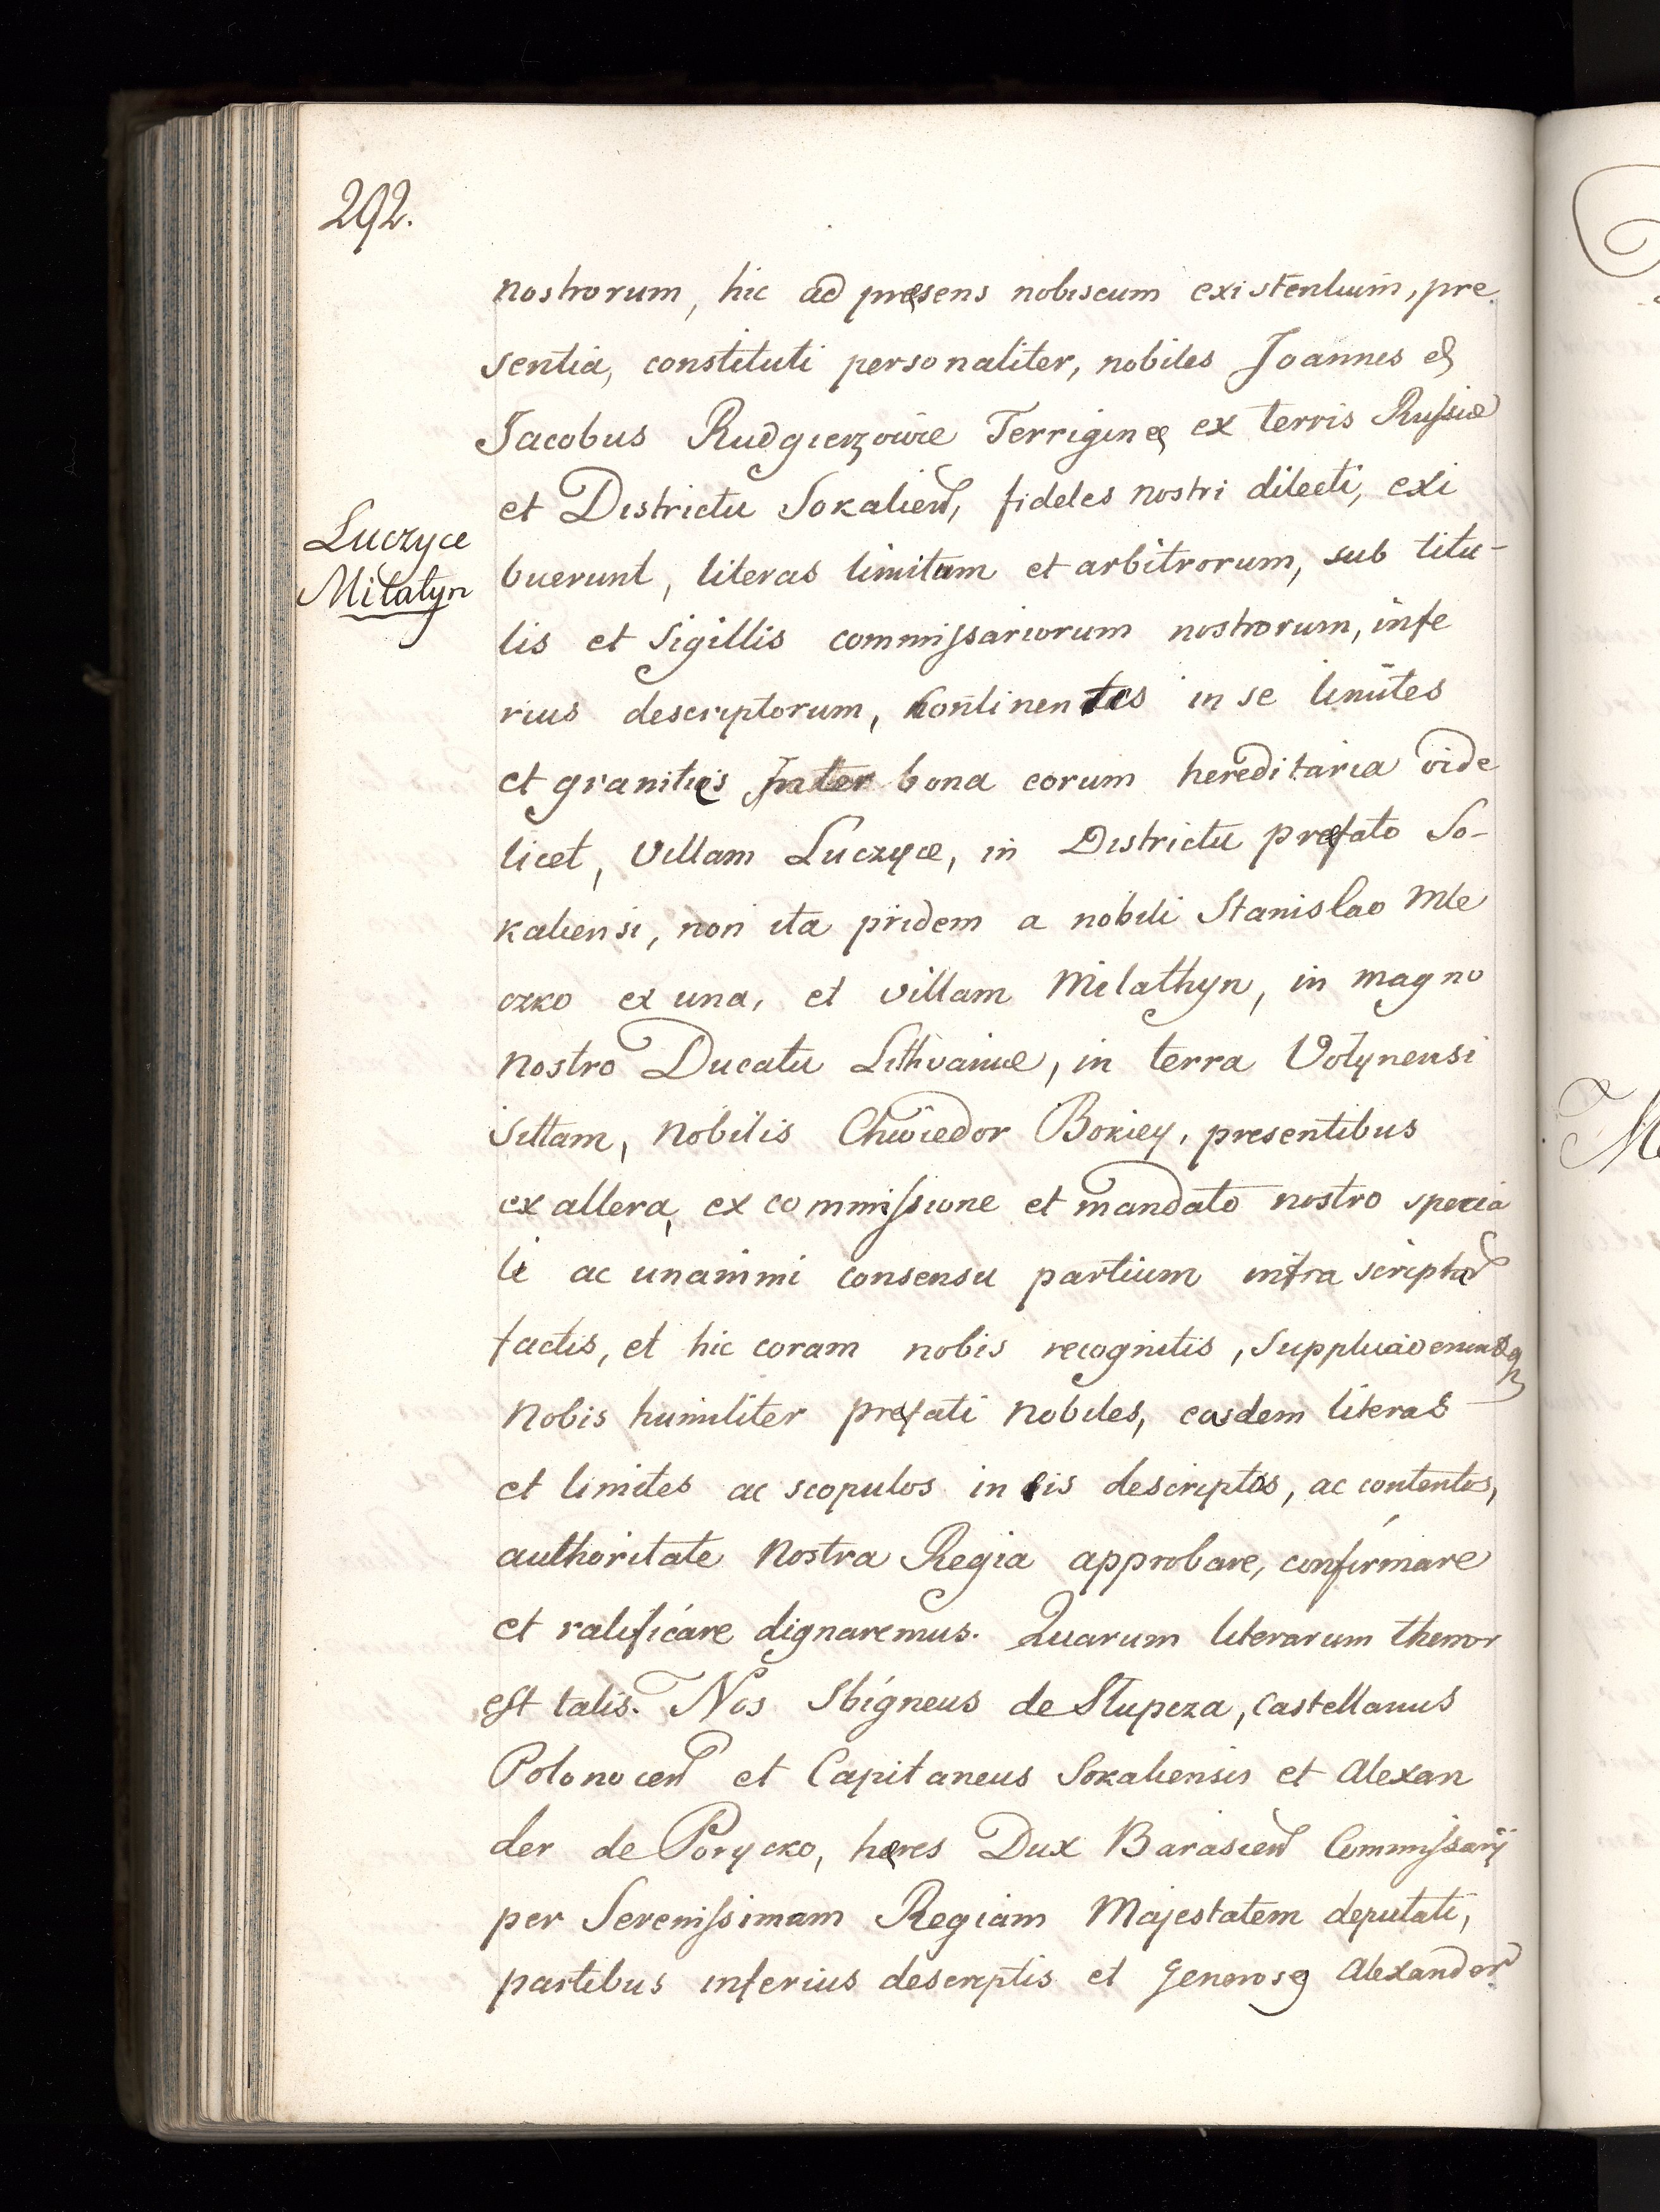 292.
nostrorum, hic ad præsens nobiscum existentium, pre
sentia, constituti personaliter, nobiles Joannes &
Jacobus Rudgierzowie Terriginę ex terris Russiæ
et Districtu Sokalień, fideles nostri dilecti, exi
Luczyce
Milatyn
buerunt, literas limitum et arbitrorum, sub titu-
lis et Sigillis commissariorum nostrorum, infe
rius descriptorum, continentes in se limites
et granities Inter bona eorum hereditaria vide
licet, Villam Luczyce, in Districtu præfato So-
kaliensi, non ita pridem a nobili Stanislao Mle
czko ex una, et villam Milathyn, in magno
nostro Ducatu Lithvaniæ, in terra Volynensi
sittam, nobilis Chwiedor Bokiey, presentibus
ex altera, ex commissione et mandato nostro specia
li ac unanimi consensu partium infra scriptar
factis, et hic coram nobis recognitis, Supplicaverunt
nobis humiliter præfati nobiles, easdem literas
et limites ac scopulos in eis descriptos, ac contentos,
authoritate nostra Regia approbare, confirmare
et ratificare dignaremus. Quarum literarum thenor
est talis. Nos Sbigneus de Slupcza, Castellanus
Polonoceń et Capitaneus Sokaliensis et Alexan
der de Porycko, hæres Dux Barasień Commissarÿ
per Serenissimam Regiam Majestatem deputati,
partibus inferius descriptis et Generosę Alexander